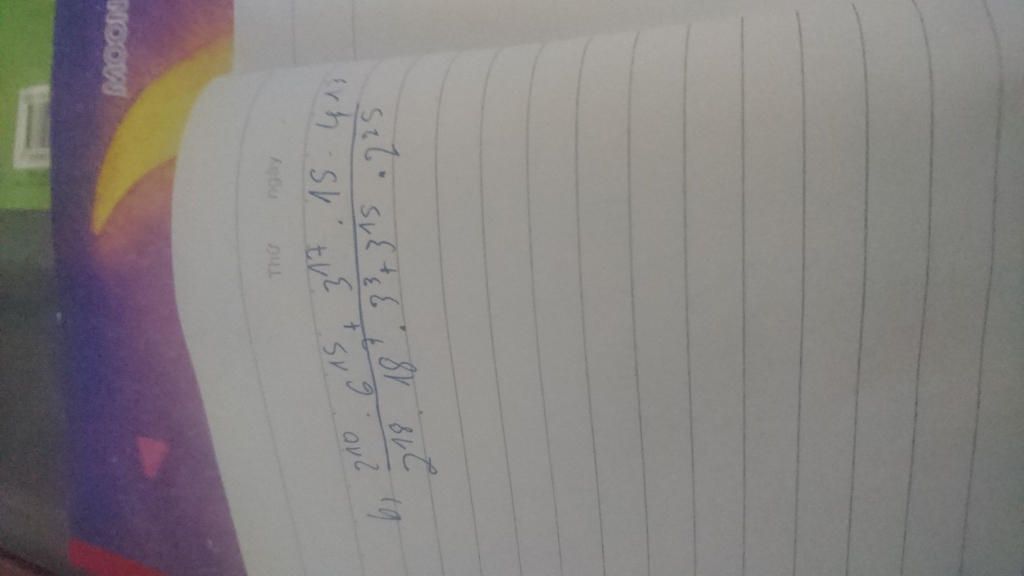 MOON
Thứ ngày
b, 2¹⁰ . 6¹⁵ + 3¹⁷ . 15 . 4¹³
2¹⁸ . 18⁷ . 3³ + 3¹⁵ . 2²⁵